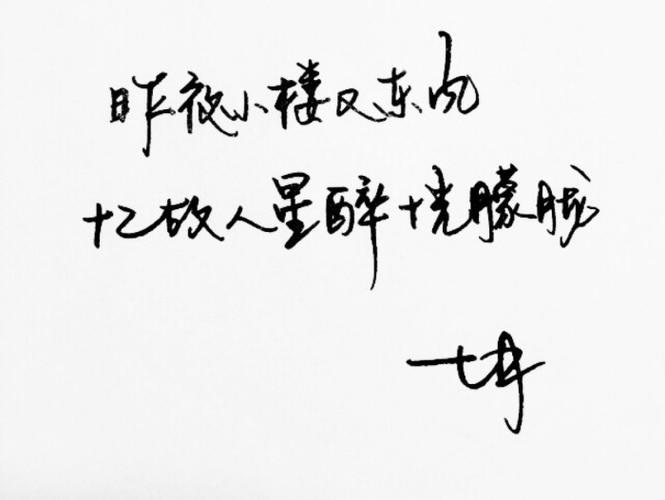 昨夜小楼又东风
忆故人星醉恍朦胧